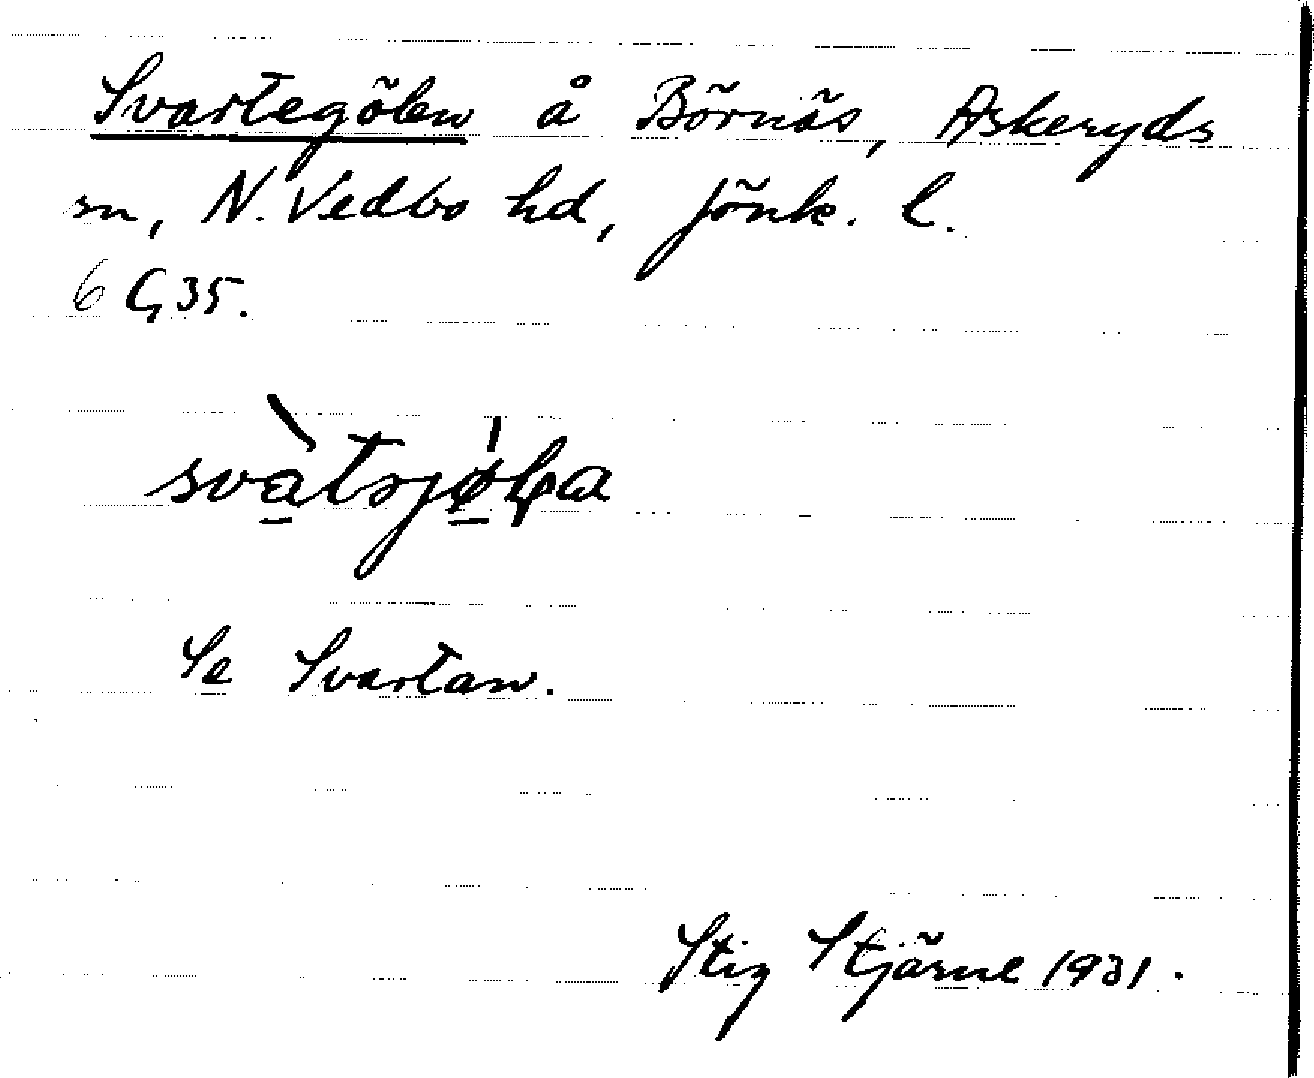 Svartegölen å Börnäs, Askeryds
sn, N. Vedbo hd, Jönk. l.
6 G 35.
Se Svartån.
Stig Stjärne 1931.